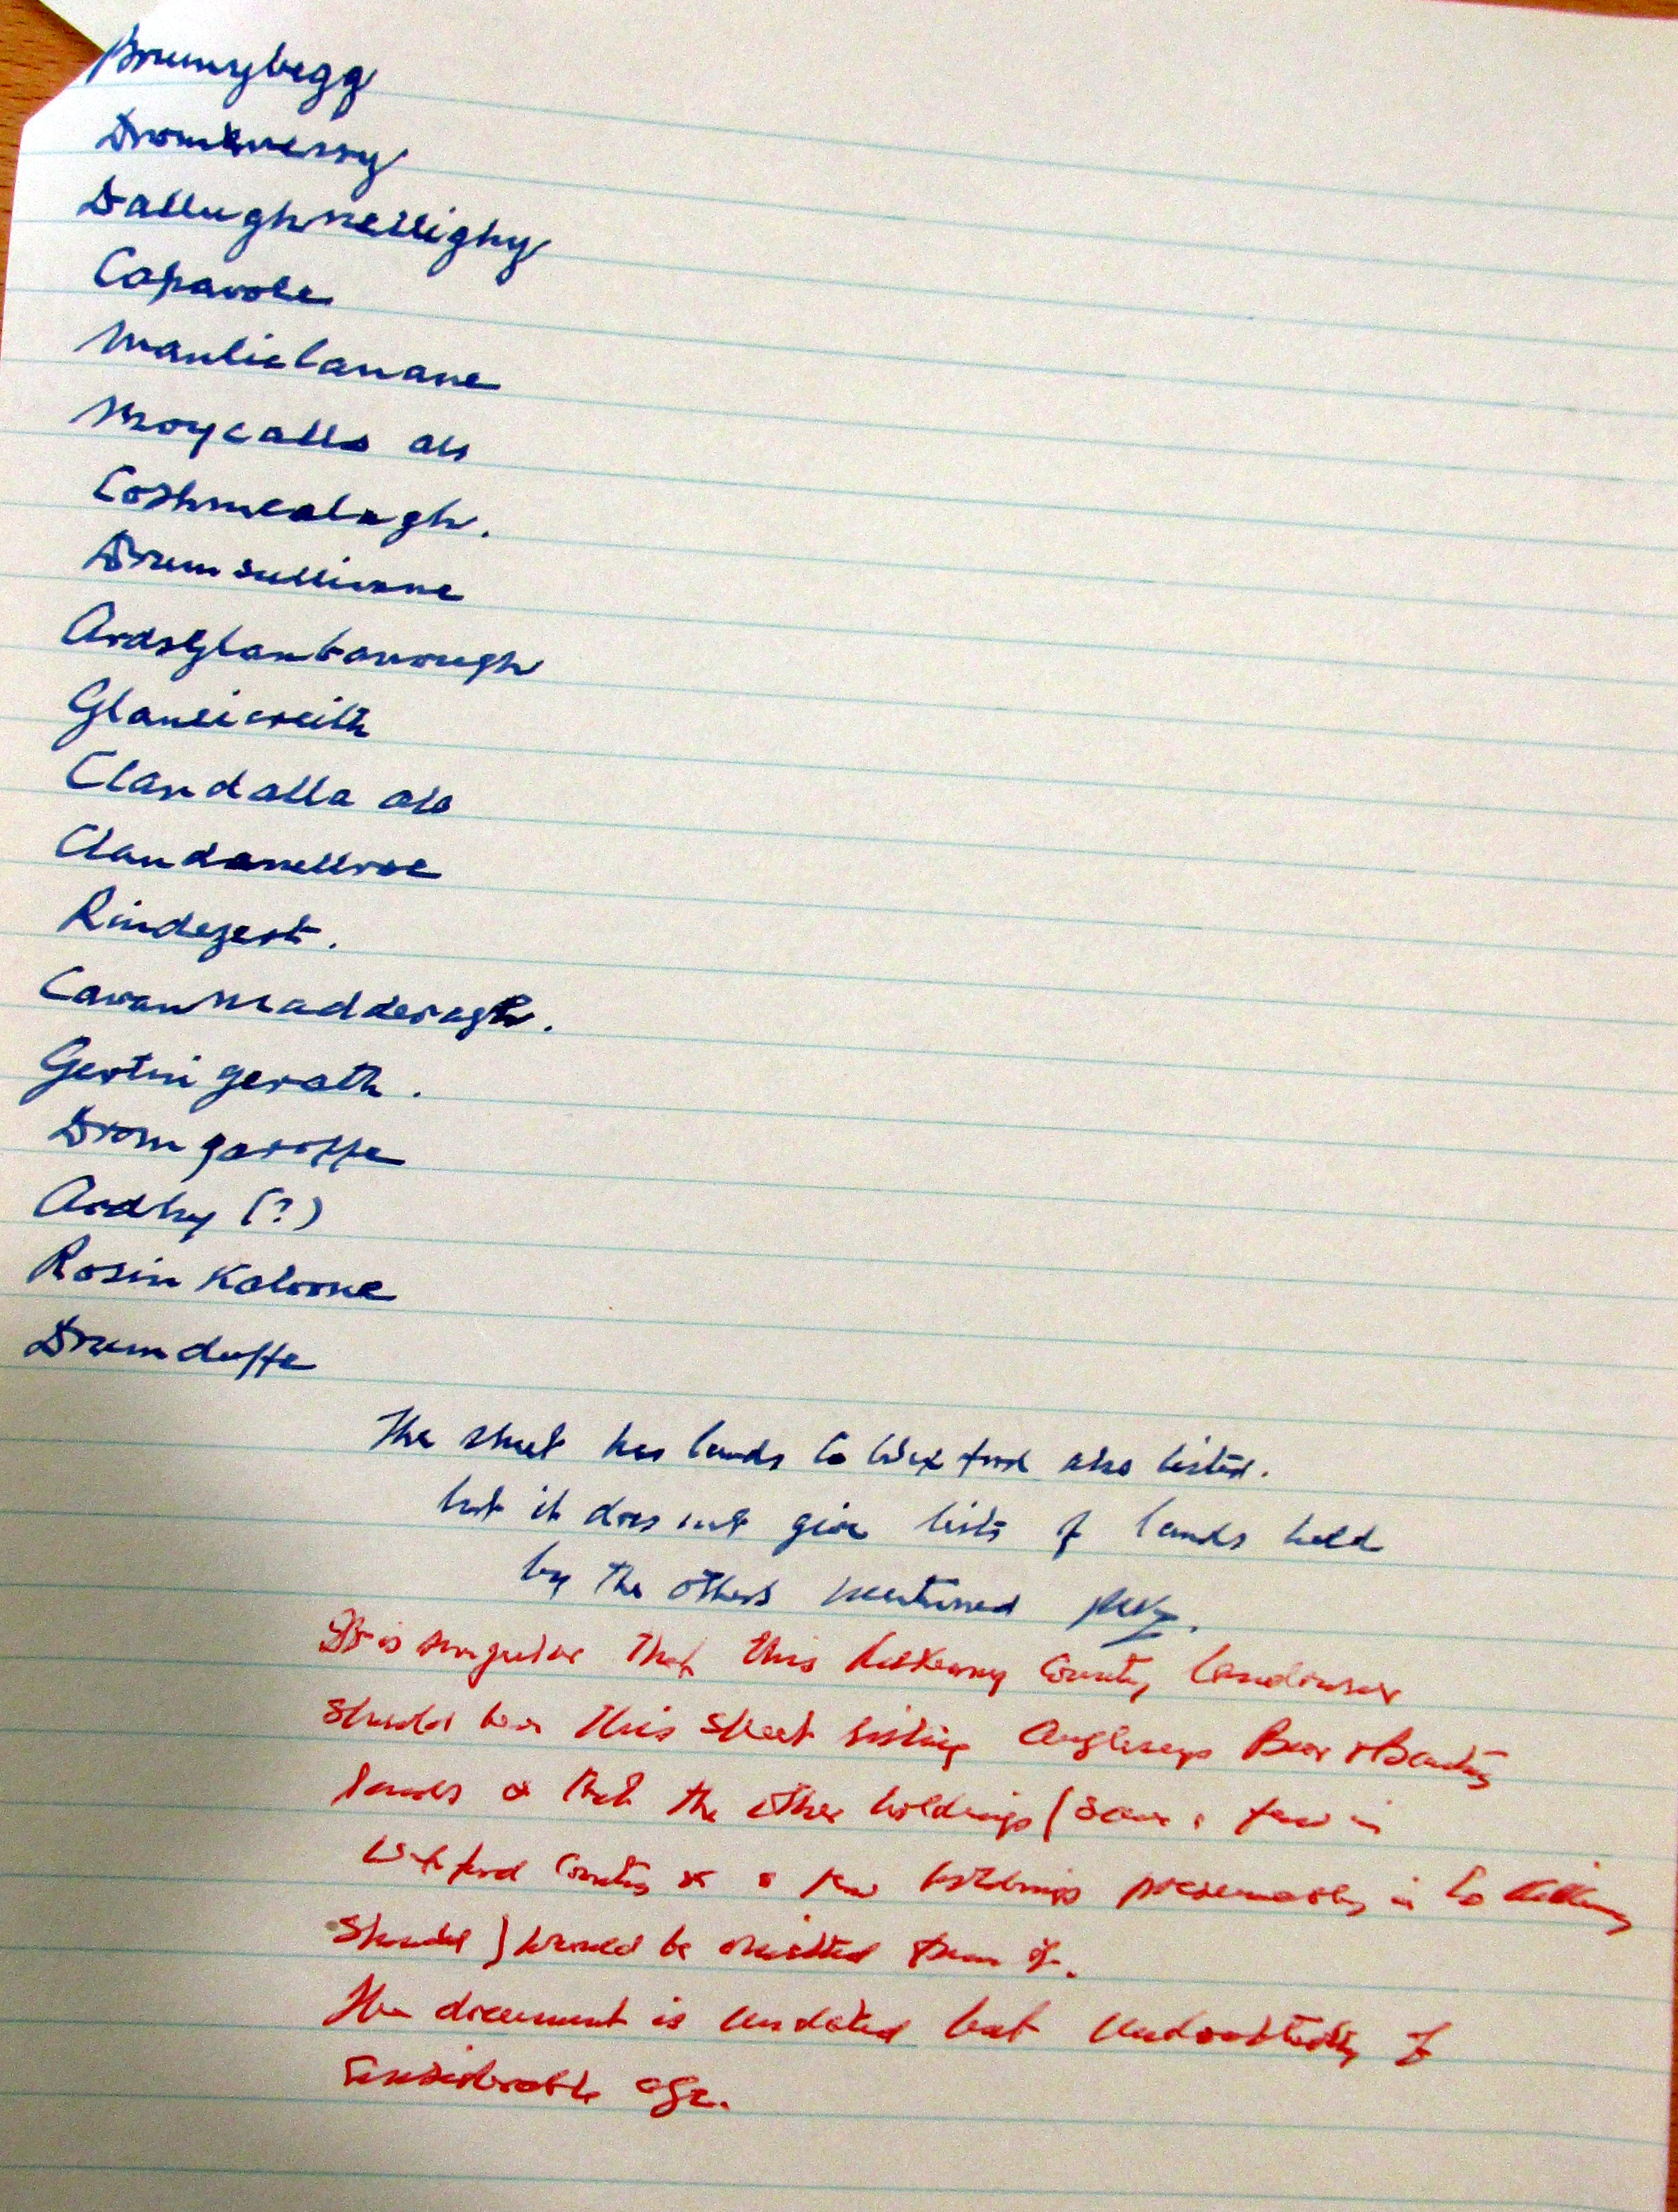 Drumybegg
Dromkverry
Dallughnellighy
Caparole
Manliclanane
Moycalla als
Coshmealagh.
Drumsullivane
Ardsglanbarrough
Glaneicreith
Clandalla als
Clandonellroe
Rindegert.
Cavanmadderagh.
Gertnigerath.
Dromgaroffe
Ardhy (?)
Rosin Kaloone
Drumduffe
The sheet has lands Co Wexford also listed.
but it does not give lists of lands held
by the others mentioned
It is singular that this Kilkenny County landowner
should have this sheet listing Angleseys Bear & Bantry
lands & that the other holdings (save a few in
Wexford County & a few holdings presumably in Co Kilkenny
) would be omitted from it.
The document is undated but undoubtedly of
considerable age.